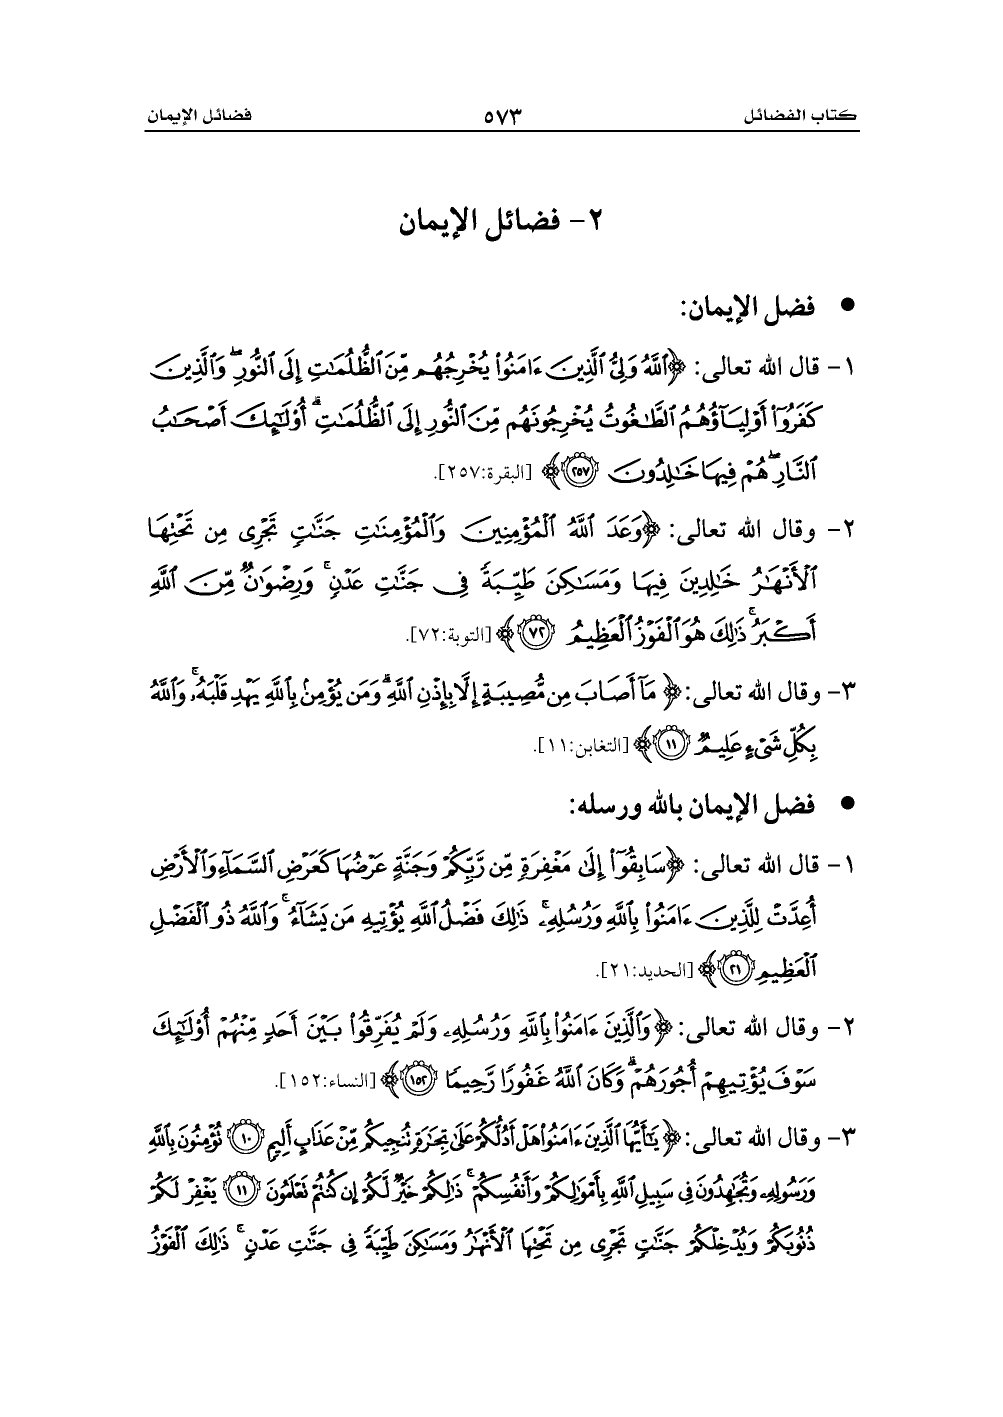 كتاب الفضائل ٥٧٣ فضائل الإيمان
٢- فضائل الإيمان
● فضل الإيمان:
١- قال الله تعالى: ﴿ٱللَّهُ وَلِىُّ ٱلَّذِينَ ءَامَنُوا۟ يُخْرِجُهُم مِّنَ ٱلظُّلُمَـٰتِ إِلَى ٱلنُّورِ ۖ وَٱلَّذِينَ
كَفَرُوٓا۟ أَوْلِيَآؤُهُمُ ٱلطَّـٰغُوتُ يُخْرِجُونَهُم مِّنَ ٱلنُّورِ إِلَى ٱلظُّلُمَـٰتِ ۗ أُو۟لَـٰٓئِكَ أَصْحَـٰبُ
ٱلنَّارِ ۖ هُمْ فِيهَا خَـٰلِدُونَ ٢٥٧﴾ [البقرة:٢٥٧].
٢- وقال الله تعالى: ﴿وَعَدَ ٱللَّهُ ٱلْمُؤْمِنِينَ وَٱلْمُؤْمِنَـٰتِ جَنَّـٰتٍ تَجْرِى مِن تَحْتِهَا
ٱلْأَنْهَـٰرُ خَـٰلِدِينَ فِيهَا وَمَسَـٰكِنَ طَيِّبَةً فِى جَنَّـٰتِ عَدْنٍ ۚ وَرِضْوَٰنٌ مِّنَ ٱللَّهِ
أَكْبَرُ ۚ ذَٰلِكَ هُوَ ٱلْفَوْزُ ٱلْعَظِيمُ ٧٢﴾ [التوبة:٧٢].
٣- وقال الله تعالى: ﴿مَآ أَصَابَ مِن مُّصِيبَةٍ إِلَّا بِإِذْنِ ٱللَّهِ ۗ وَمَن يُؤْمِنۢ بِٱللَّهِ يَهْدِ قَلْبَهُۥ ۚ وَٱللَّهُ
بِكُلِّ شَىْءٍ عَلِيمٌ ١١﴾ [التغابن:١١].
● فضل الإيمان بالله ورسله:
١- قال الله تعالى: ﴿سَابِقُوٓا۟ إِلَىٰ مَغْفِرَةٍ مِّن رَّبِّكُمْ وَجَنَّةٍ عَرْضُهَا كَعَرْضِ ٱلسَّمَآءِ وَٱلْأَرْضِ
أُعِدَّتْ لِلَّذِينَ ءَامَنُوا۟ بِٱللَّهِ وَرُسُلِهِۦ ۚ ذَٰلِكَ فَضْلُ ٱللَّهِ يُؤْتِيهِ مَن يَشَآءُ ۚ وَٱللَّهُ ذُو ٱلْفَضْلِ
ٱلْعَظِيمِ ٢١﴾ [الحديد:٢١].
٢- وقال الله تعالى: ﴿وَٱلَّذِينَ ءَامَنُوا۟ بِٱللَّهِ وَرُسُلِهِۦ وَلَمْ يُفَرِّقُوا۟ بَيْنَ أَحَدٍ مِّنْهُمْ أُو۟لَـٰٓئِكَ
سَوْفَ يُؤْتِيهِمْ أُجُورَهُمْ ۗ وَكَانَ ٱللَّهُ غَفُورًا رَّحِيمًا ١٥٢﴾ [النساء:١٥٢].
٣- وقال الله تعالى: ﴿يَـٰٓأَيُّهَا ٱلَّذِينَ ءَامَنُوا۟ هَلْ أَدُلُّكُمْ عَلَىٰ تِجَـٰرَةٍ تُنجِيكُم مِّنْ عَذَابٍ أَلِيمٍ ١٠ تُؤْمِنُونَ بِٱللَّهِ
وَرَسُولِهِۦ وَتُجَـٰهِدُونَ فِى سَبِيلِ ٱللَّهِ بِأَمْوَٰلِكُمْ وَأَنفُسِكُمْ ۚ ذَٰلِكُمْ خَيْرٌ لَّكُمْ إِن كُنتُمْ تَعْلَمُونَ ١١ يَغْفِرْ لَكُمْ
ذُنُوبَكُمْ وَيُدْخِلْكُمْ جَنَّـٰتٍ تَجْرِى مِن تَحْتِهَا ٱلْأَنْهَـٰرُ وَمَسَـٰكِنَ طَيِّبَةً فِى جَنَّـٰتِ عَدْنٍ ۚ ذَٰلِكَ ٱلْفَوْزُ